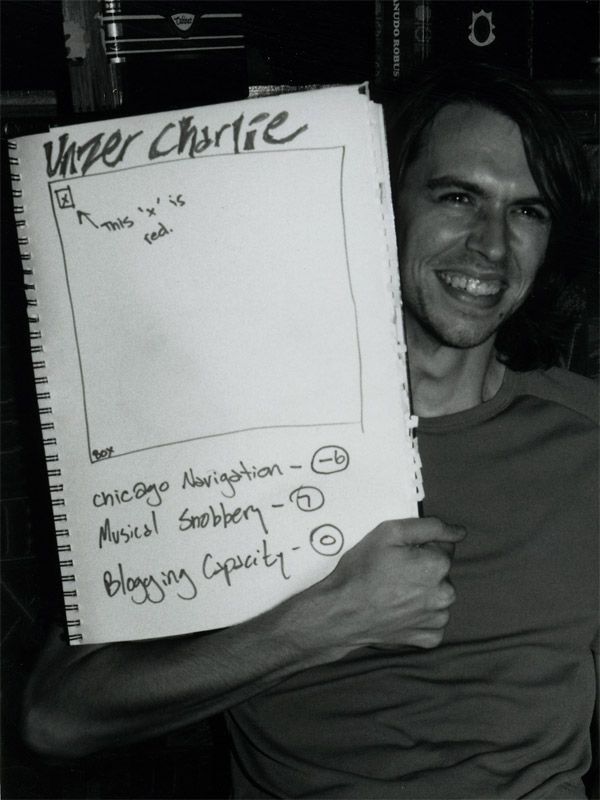 Unzer Charlie
x
This 'x' is
red.
BOX
Chicago Navigation - -6
Musical Snobbery - 7
Blogging Capacity - 0
NUDO ROBUS